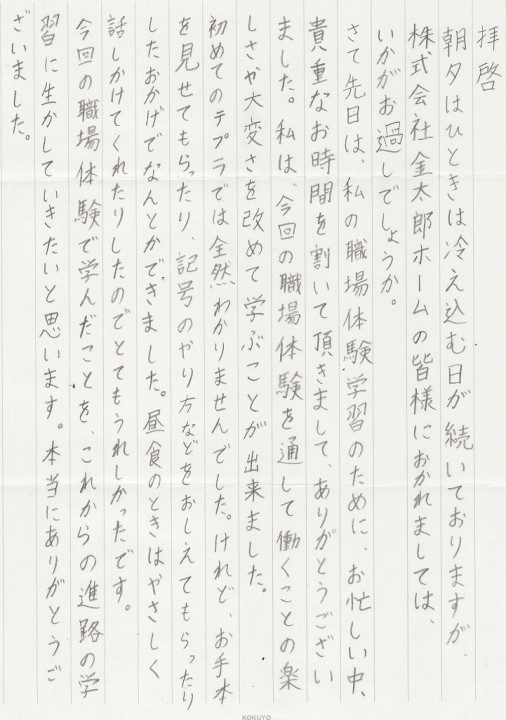 拝啓
朝夕はひときは冷え込む日が続いておりますが、
株式会社金太郎ホームの皆様におかれましては、
いかがお過しでしょうか。
さて先日は、私の職場体験学習のために、お忙しい中、
貴重なお時間を割いて頂きまして、ありがとうござい
ました。私は、今回の職場体験を通して働くことの楽
しさや大変さを改めて学ぶことが出来ました。
初めてのテプラでは全然わかりませんでした。けれど、お手本
を見せてもらったり、記号のやり方などをおしえてもらったり
したおかげでなんとかできました。昼食のときはやさしく
話しかけてくれたりしたのでとてもうれしかったです。
今回の職場体験で学んだことを、これからの進路の学
習に生かしていきたいと思います。本当にありがとうご
ざいました。
KOKUYO